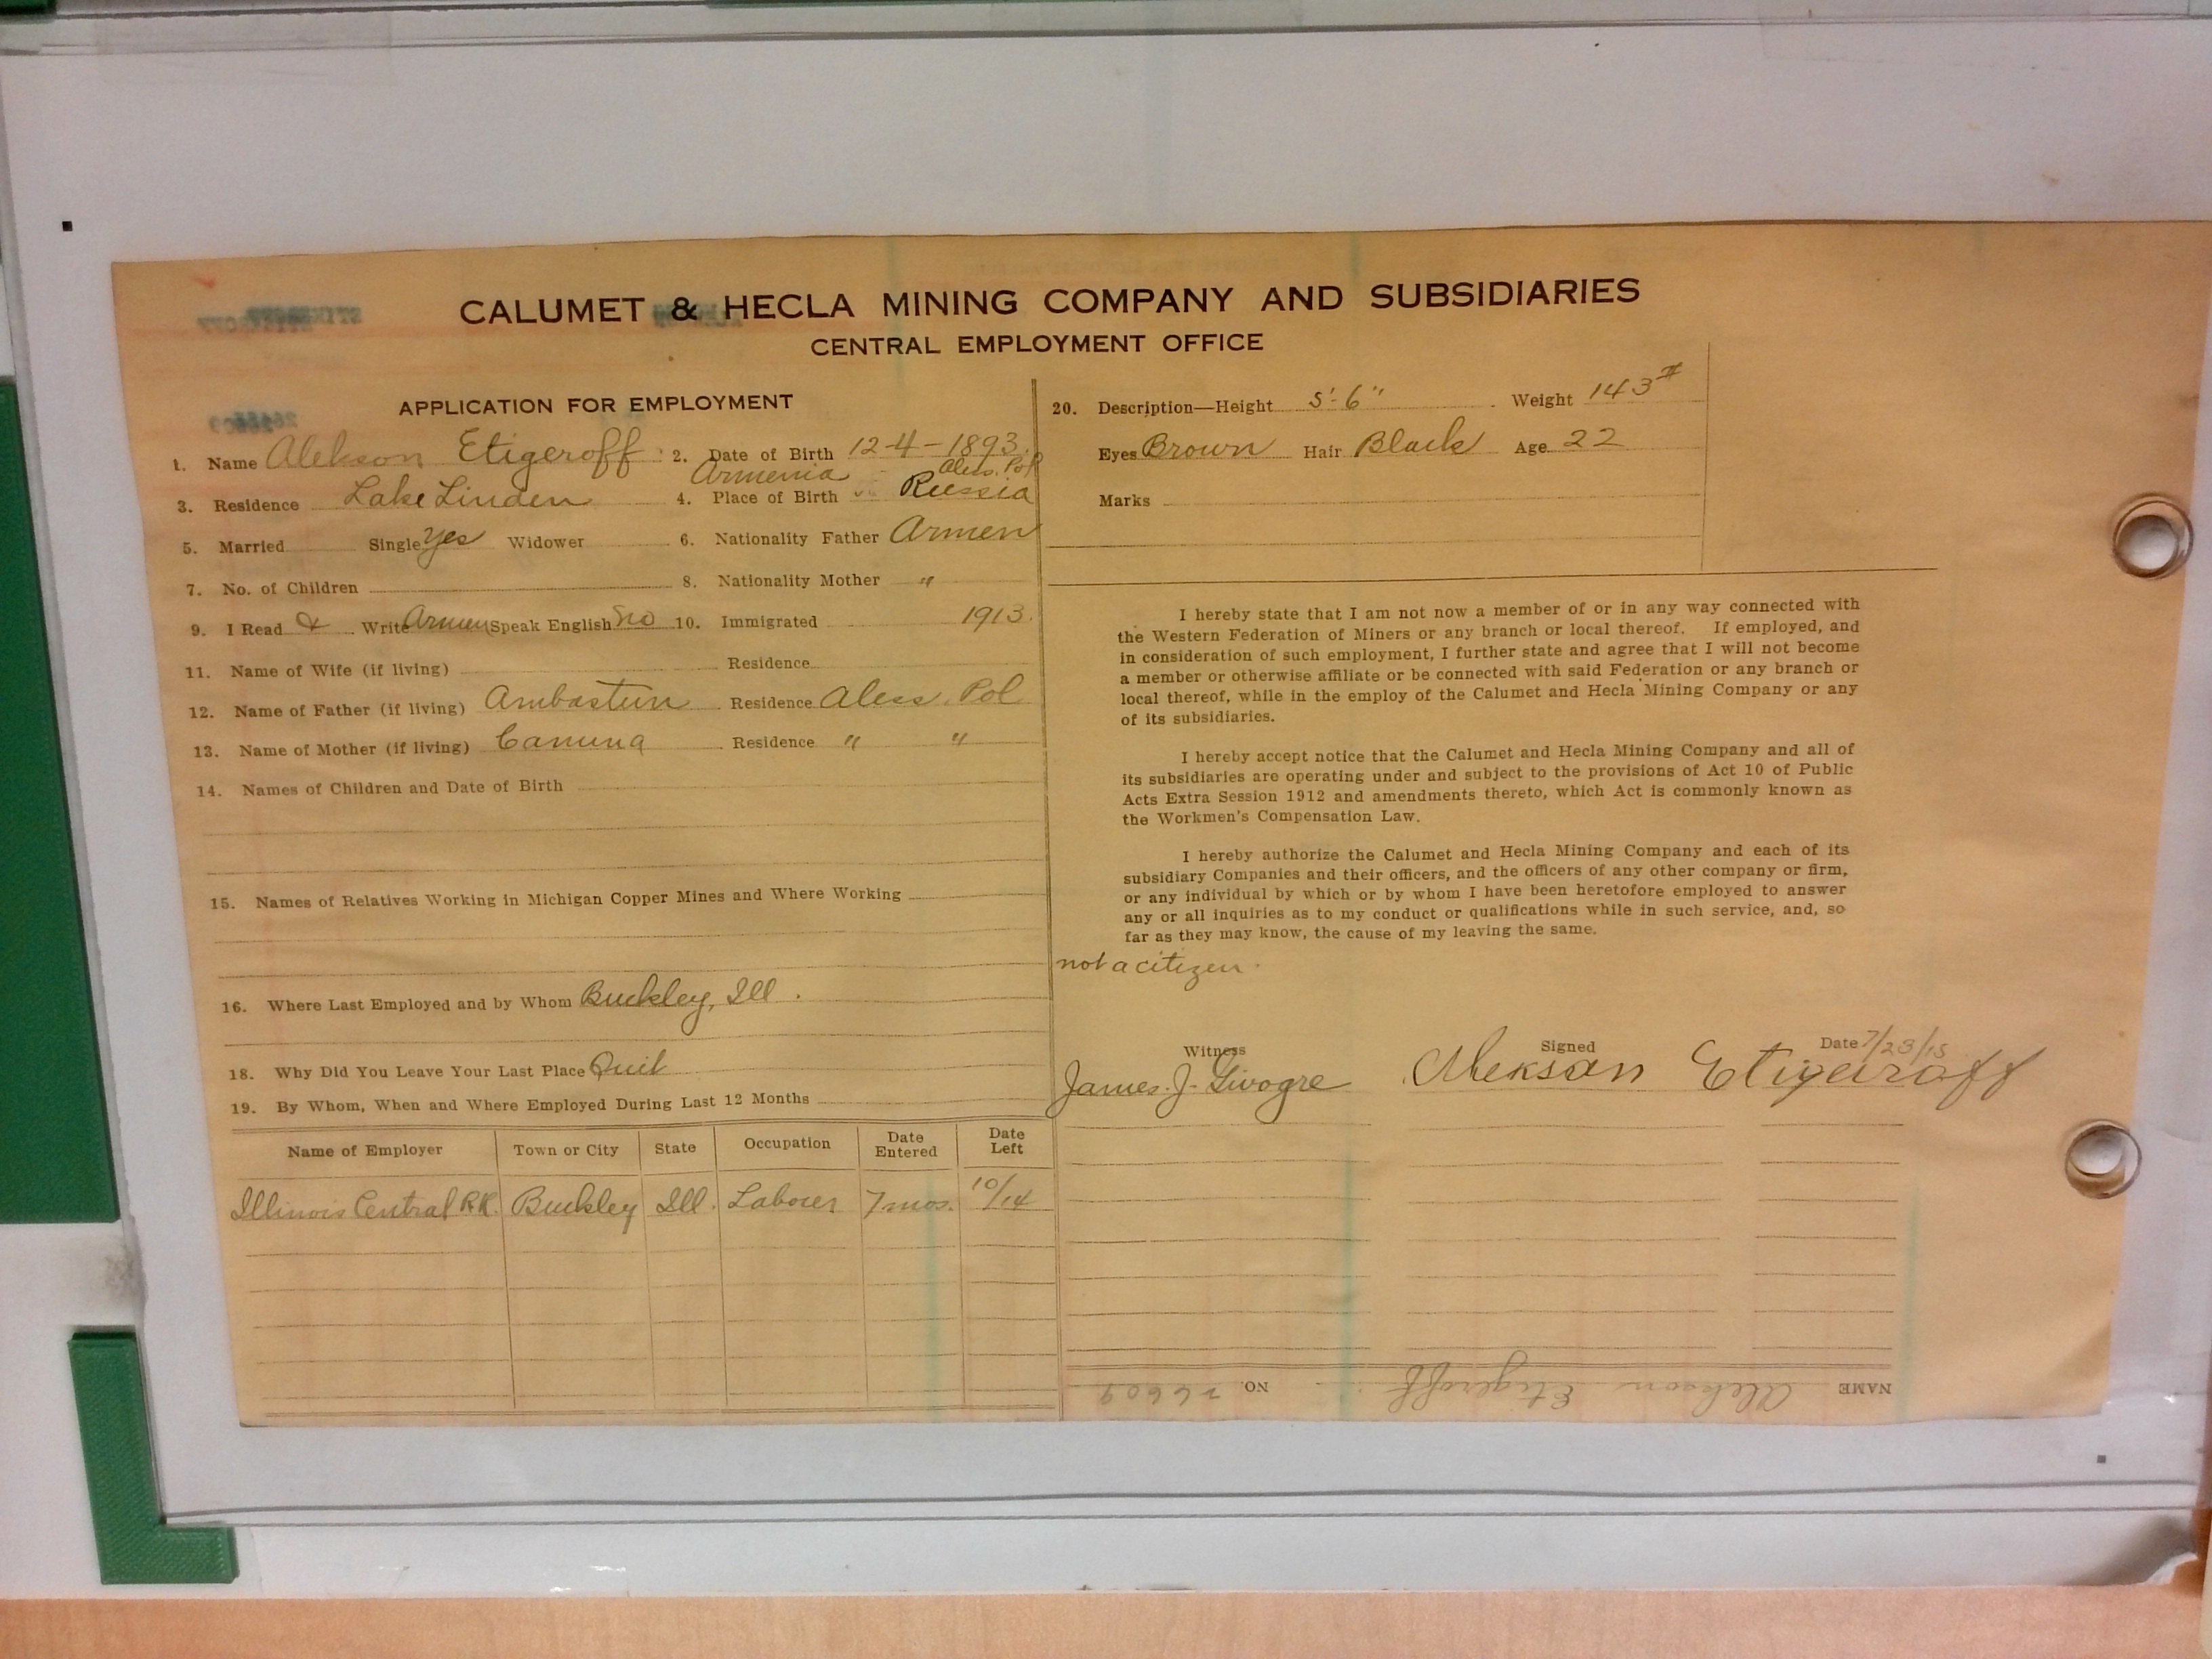 CALUMET & HECLA MINING COMPANY AND SUBSIDIARIES
CENTRAL EMPLOYMENT OFFICE
APPLICATION FOR EMPLOYMENT
1. Name Alekson Etigeroff 2. Date of Birth 12-4-1893.
Armenia Aless. Pol
3. Residence Lake Linden 4. Place of Birth Russia
5. Married Single Yes Widower 6. Nationality Father Armen
7. No. of Children 8. Nationality Mother "
9. I Read & Write Armen Speak English No 10. Immigrated 1913.
11. Name of Wife (if living) Residence
12. Name of Father (if living) Ambastun Residence Aless. Pol
13. Name of Mother (if living) Residence " "
14. Names of Children and Date of Birth
15. Names of Relatives Working in Michigan Copper Mines and Where Working
16. Where Last Employed and by Whom Buckley, Ill.
18. Why Did You Leave Your Last Place Quit
19. By Whom, When and Where Employed During Last 12 Months
Name of Employer Town or City State Occupation Date Entered Date Left
Illinois Central RR. Buckley Ill. Laborer 7 mos. 10/14
20. Description—Height 5'-6" Weight 143#
Eyes Brown Hair Black Age 22
Marks
I hereby state that I am not now a member of or in any way connected with
the Western Federation of Miners or any branch or local thereof. If employed, and
in consideration of such employment, I further state and agree that I will not become
a member or otherwise affiliate or be connected with said Federation or any branch or
local thereof, while in the employ of the Calumet and Hecla Mining Company or any
of its subsidiaries.
I hereby accept notice that the Calumet and Hecla Mining Company and all of
its subsidiaries are operating under and subject to the provisions of Act 10 of Public
Acts Extra Session 1912 and amendments thereto, which Act is commonly known as
the Workmen's Compensation Law.
I hereby authorize the Calumet and Hecla Mining Company and each of its
subsidiary Companies and their officers, and the officers of any other company or firm,
or any individual by which or by whom I have been heretofore employed to answer
any or all inquiries as to my conduct or qualifications while in such service, and, so
far as they may know, the cause of my leaving the same.
not a citizen.
Witness Signed Date 7/23/15
James J. Livogre Aleksan Etigaroff
NAME Alekson Etigeroff NO. 26609